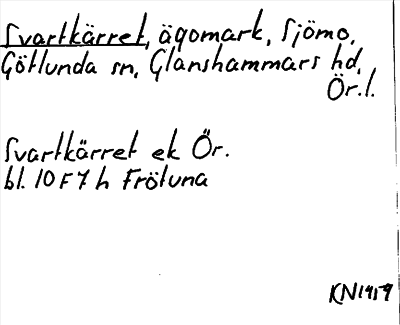 Svartkärret, ägomark, Sjömo,
Götlunda sn, Glanshammars hd,
Ör.l.
Svartkärret ek Ör.
bl. 10F7h Fröluna